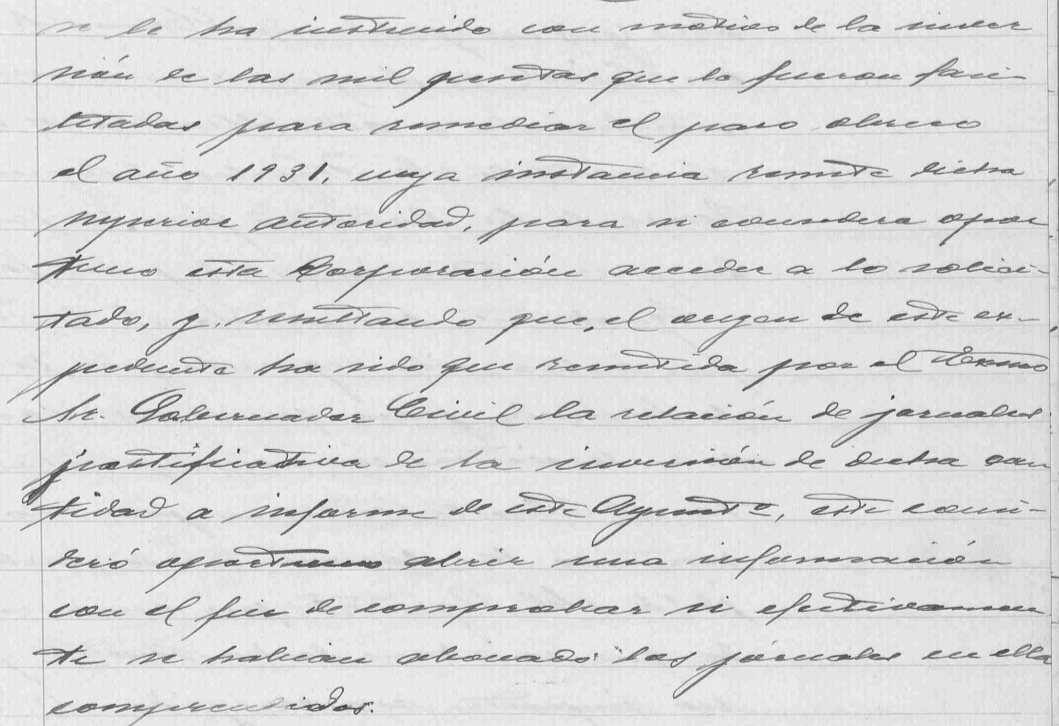 se le ha instruido con motivo de la inver
sión de las mil pesetas que le fueron faci-
litadas para remediar el paro obrero
el año 1931, cuya instancia remite dicha
superior autoridad, para si considera opor
tuno esta Corporación acceder a lo solici-
tado, y, resultando que, el origen de este ex-
pediente ha sido que remitida por el Excmo
Sr. Gobernador Civil la relación de jornales
justificativa de la inversión de dicha can
tidad a informe de este Ayuntº, este consi-
deró oportuno abrir una información
con el fin de comprobar si efectivamen
te se habían abonado los jornales en ella
comprendidos.